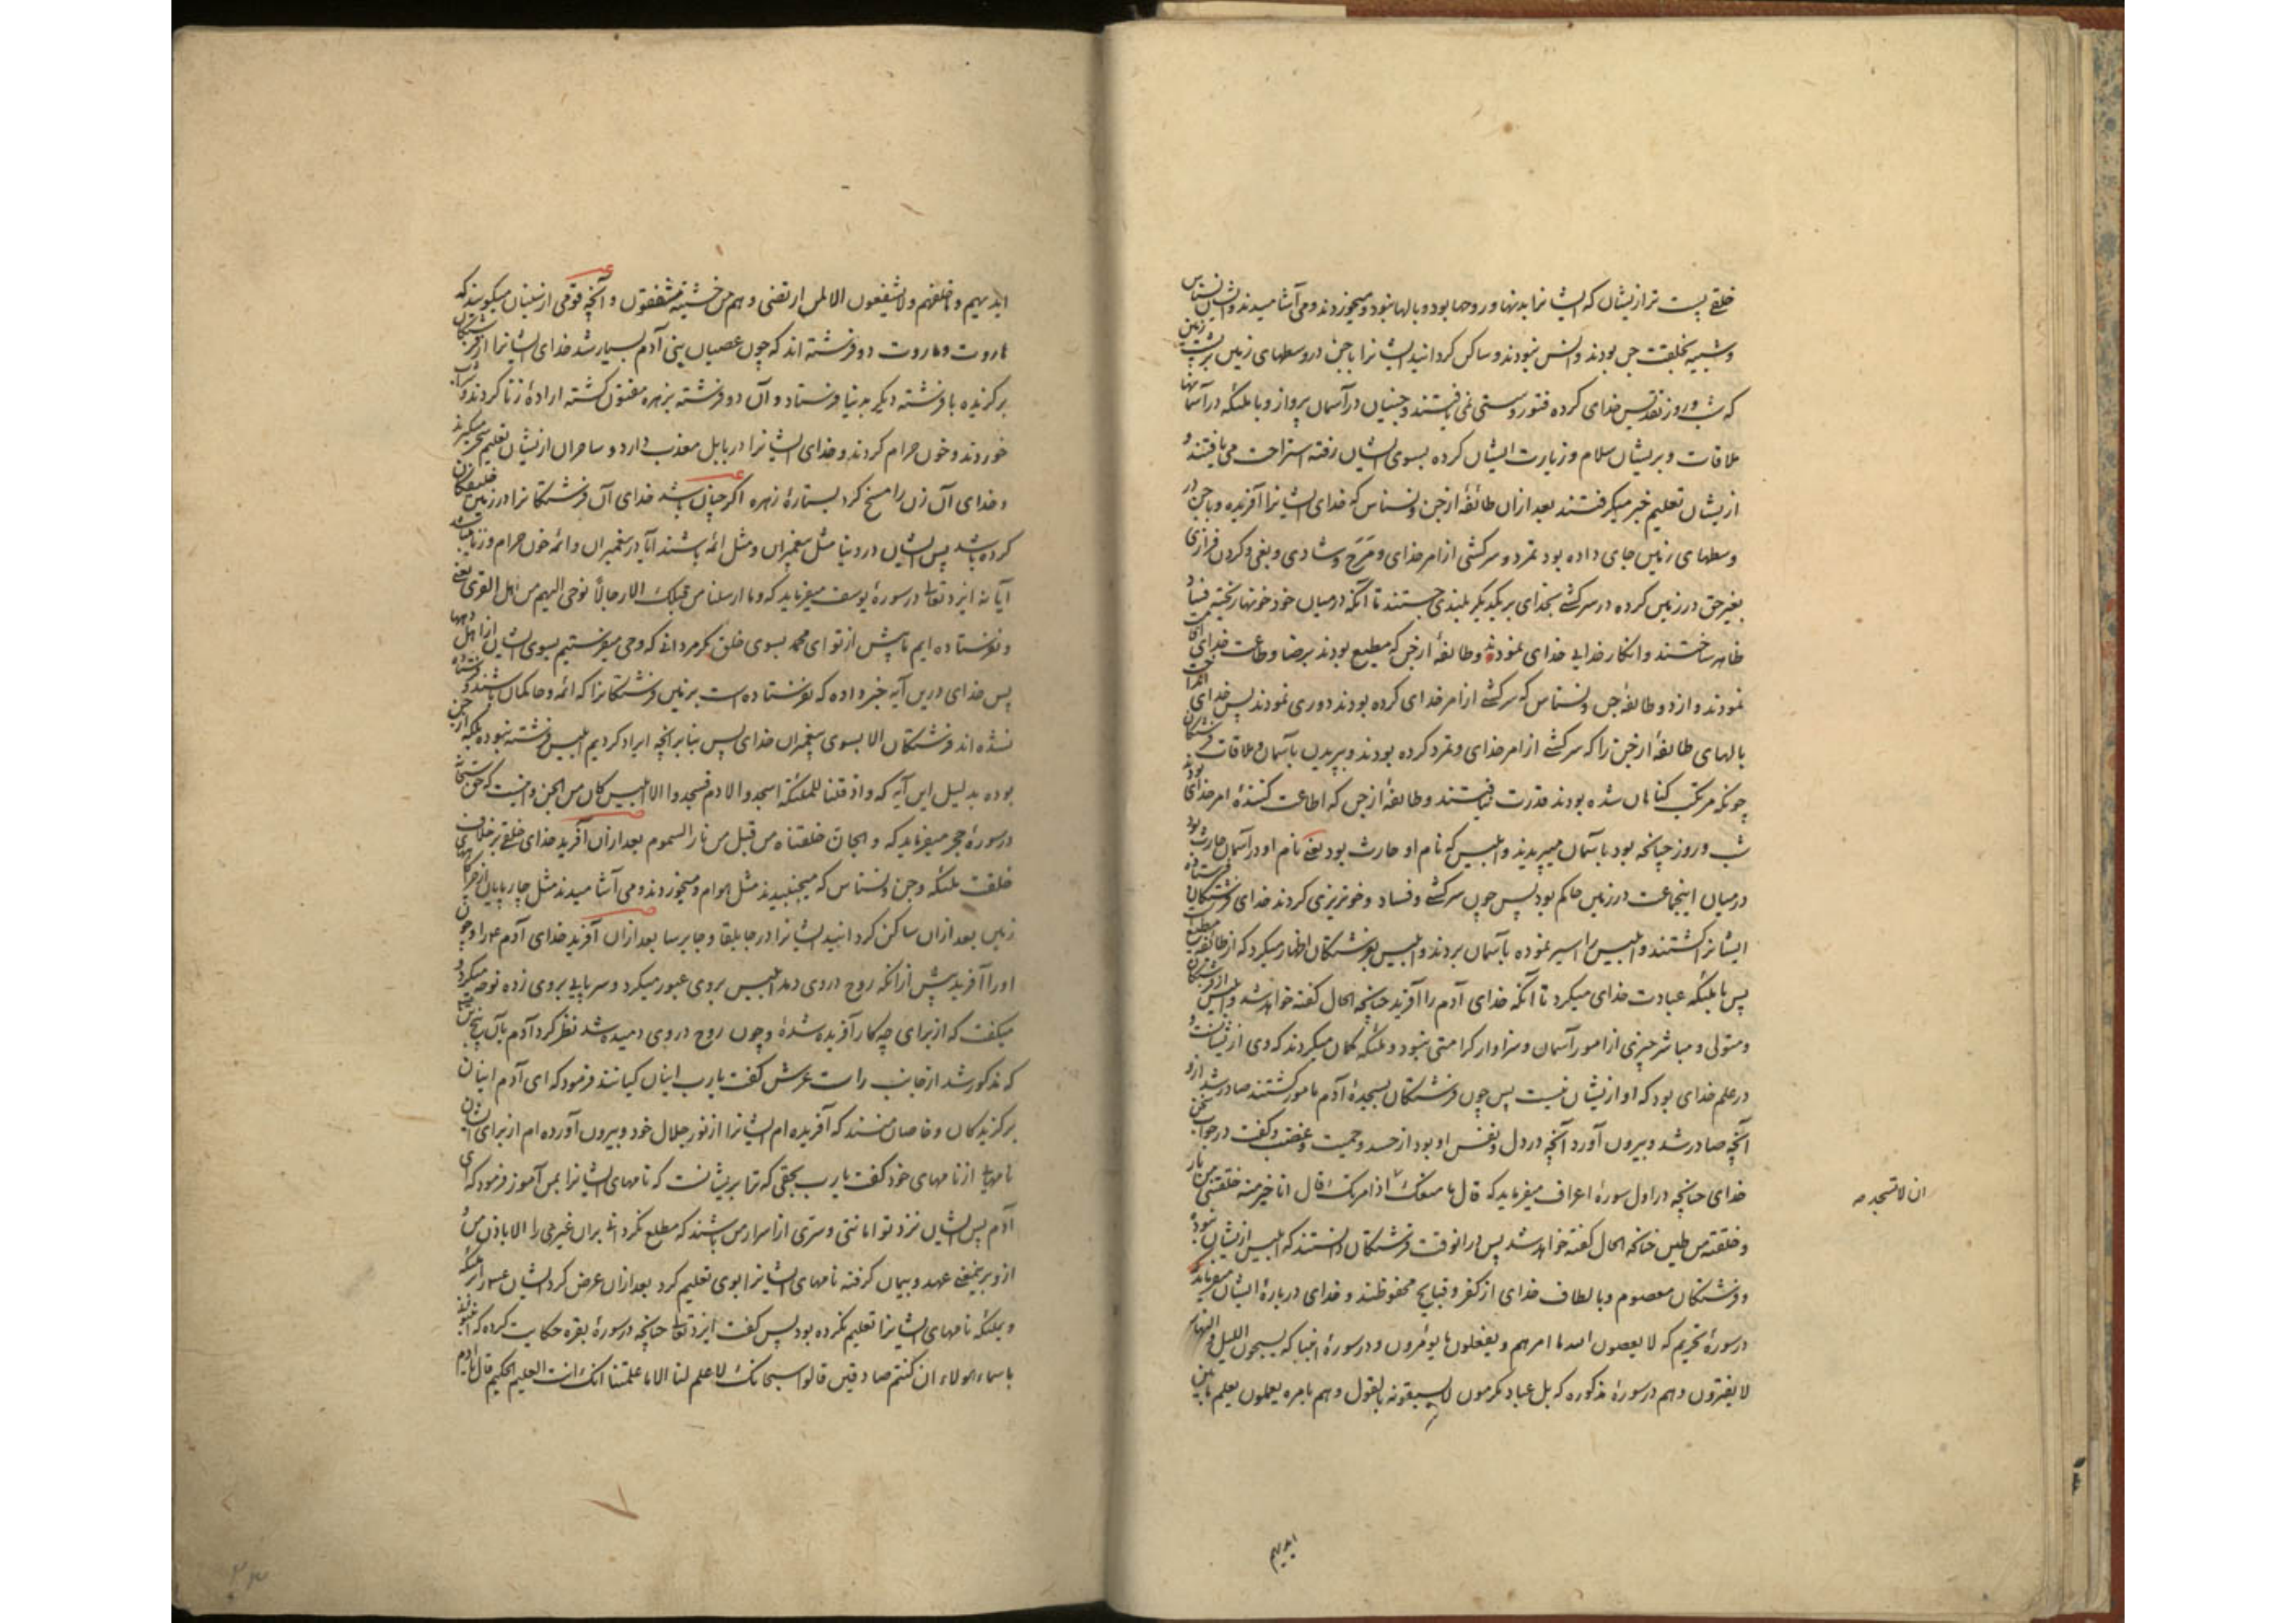 خلقی پست تر ازیشان که ایشانرا بدنها و روحها بود و بالها نبود و میخوردند و می آشامیدند و ایشان نسناس
و شبیه بخلقت جن بودند و انس نبودند و ساکن گردانید ایشانرا با جن در وسطهای زمین بر پشت زمین
که شب و روز تقدیس خدای کرده فتور و سستی نمی یافتند و جنیان در آسمان پرواز و با ملئکه در آسمانها
ملاقات و بریشان سلام و زیارت ایشان کرده بسوی ایشان رفته استراحت می یافتند و
ازیشان تعلیم خبر میگرفتند بعد ازان طائفهٔ از جن و نسناس که خدای ایشانرا آفریده و با جن در
وسطهای زمین جای داده بود تمرد و سرکشی از امر خدای و مَرَح و شادی و بغی و گردن فرازی
بغیر حق در زمین کرده در سرکشی بخدای بر یکدیگر بلندی جستند تا آنکه در میان خود خونها ریخته فساد
ظاهر ساختند و انکار خدایی خدای نمودند و طائفهٔ از جن که مطیع بودند برضا و طاعت خدای
نمودند و از دو طائفهٔ جن و نسناس که سرکشی از امر خدای کرده بودند دوری نمودند پس خدای
بالهای طائفهٔ از جن را که سرکشی از امر خدای و تمرد کرده بودند و بپریدن بآسمان و ملاقات فرشتگان
چونکه مرتکب گناهان شده بودند قدرت نیافتند و طائفهٔ از جن که اطاعت کنندهٔ امر خدای بودند
شب و روز چنانچه بود بآسمان میپریدند و ابلیس که نام او حارث بود یعنی نام او در آسمان حارث بود
در میان اینجماعت در زمین حاکم بود پس چون سرکشی و فساد و خونریزی کردند خدای فرشتگان فرستاده
ایشانرا کشتند و ابلیس را اسیر نموده بآسمان بردند و ابلیس بفرشتگان اظهار میکرد که از طائفه مطیع
پس با ملئکه عبادت خدای میکرد تا آنکه خدای آدم را آفرید چنانچه الحال گفته خواهد شد و ابلیس از فرشتگان
و متولی و مباشر چیزی از امور آسمان و سزاوار کرامتی نبود و ملئکه گمان میکردند که وی ازیشانست و
در علم خدای بود که او ازیشان نیست پس چون فرشتگان بسجدهٔ آدم مامور گشتند صادر شد ازو
آنچه صادر شد و بیرون آورد آنچه در دل و نفس او بود از حسد و حمیت و غضب و گفت در جواب سخن
خدای چنانچه در اول سورهٔ اعراف میفرماید که قال ما منعک اذ امرتک قال انا خیر منه خلقتنی من نار
ان لا تسجد صه
و خلقته من طین چنانکه الحال گفته خواهد شد پس درانوقت فرشتگان دانستند که ابلیس ازیشان نبود
و فرشتگان معصوم و بالطاف خدای از کفر و قبایح محفوظند و خدای در بارهٔ ایشان میفرماید
در سورهٔ تحریم که لا یعصون الله ما امرهم و یفعلون ما یؤمرون و در سورهٔ انبیا که یسبحون اللیل و النهار
لا یفترون و هم در سورهٔ مذکوره که بل عباد مکرمون لا یسبقونه بالقول و هم بامره یعملون یعلم ما بین
ایدیهم
ایدیهم و ما خلفهم ولا یشفعون الا لمن ارتضی و هم من خشیته مشفقون و آنچه قومی ازسنیان میگویند که
هاروت و ماروت دو فرشته اند که چون عصیان بنی آدم بسیار شد خدای ایشانرا از فرشتگان
برگزیده با فرشته دیگر بدنیا فرستاد و آن دو فرشته بزهره مفتون گشته ارادهٔ زنا کردند و شراب
خوردند و خون حرام کردند و خدای ایشانرا در بابل معذب دارد و ساحران ازیشان تعلیم سحر میگیرند
و خدای آن زن را مسخ کرد بستارهٔ زهره اگر چنان باشد خدای آن فرشتگانرا در زمین خلیفگان
کرده باشد پس ایشان در دنیا مثل پیغمبران و مثل ائمه باشند آیا در پیغمبران و ائمه خون حرام و زنا میباشد
آیا نه ایزد تعالی در سورهٔ یوسف میفرماید که و ما ارسلنا من قبلک الا رجالاً نوحی الیهم من اهل القری یعنی
و نفرستاده ایم ما پیش از تو ای محمد بسوی خلق مگر مردانی که وحی میفرستیم بسوی ایشان از اهل دهها
پس خدای درین آیه خبر داده که نفرستاده است بزمین فرشتگانرا که ائمه و حاکمان باشند و فرستاده
نشده اند فرشتگان الا بسوی پیغمبران خدای پس بنابر آنچه ایراد کردیم ابلیس فرشته نبوده بلکه از جن
بوده بدلیل این آیه که واذ قلنا للملئکة اسجدوا لادم فسجدوا الا ابلیس کان من الجن و اینست که حق تعالی
در سورهٔ حجر میفرماید که و الجان خلقناه من قبل من نار السموم بعد ازان آفرید خدای خلقی بر خلاف
خلقت ملئکه و جن و نسناس که میجنبیدند مثل هوام و میخوردند و می آشامیدند مثل چارپایان از چراگاههای
زمین بعد ازان ساکن گردانید ایشانرا در جابلقا و جابرسا بعد ازان آفرید خدای آدم ع را و چون
او را آفرید پیش از آنکه روح در وی دمد ابلیس بروی عبور میکرد و سر پایی بروی زده نوحه میکرد و
میگفت که از برای چه کار آفریده شدهٔ و چون روح در وی دمیده شد نظر کرد آدم بآن پنج
که مذکور شد از جانب راست عرش گفت یا رب اینان کیانند فرمود که ای آدم اینان
برگزیدگان و خاصان منند که آفریده ام ایشانرا از نور جلال خود و بیرون آورده ام از برای ایشان
نامها از نامهای خود گفت یا رب بحقی که ترا بریشانست که نامهای ایشانرا بمن آموز فرمود که ای
آدم پس ایشان نزد تو امانتی و سرّی از اسرار من باشند که مطلع نگردانی بران غیری را الا باذن من
ازو بر ینمعنی عهد و پیمان گرفته نامهای ایشانرا بوی تعلیم کرد بعد ازان عرض کرد ایشان را بر ملئکه
و بملئکه نامهای ایشانرا تعلیم نکرده بود پس گفت ایزد تعالی چنانچه در سورهٔ بقره حکایت کرده که انبئونی
باسماء هؤلاء ان کنتم صادقین قالوا سبحانک لا علم لنا الا ما علمتنا انک انت العلیم الحکیم قال یا آدم